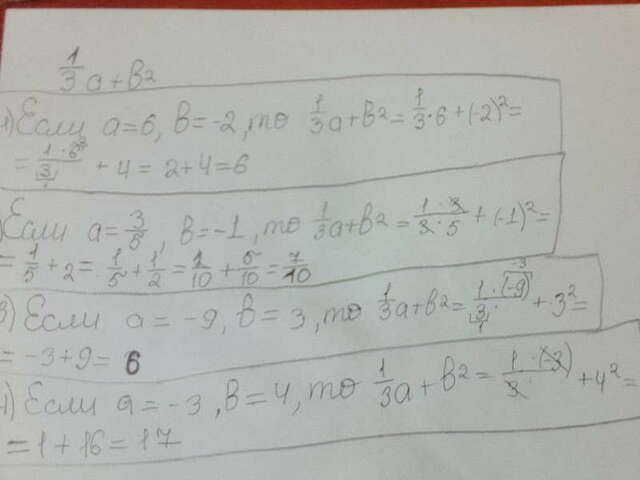 1/3 a + b²
1) Если a=6, b=-2, то 1/3 a + b² = 1/3 · 6 + (-2)² =
= 1·6²/3₁ + 4 = 2+4=6
Если a = 3/5, b = -1, то 1/3 a + b² = 1·3/3·5 + (-1)² =
= 1/5 + 2 = 1/5 + 1/2 = 2/10 + 5/10 = 7/10
3) Если a = -9, b = 3, то 1/3 a + b² = 1·(-9)⁻³/3₁ + 3² =
= -3+9= 6
4) Если a = -3, b = 4, то 1/3 a + b² = 1·(-3)/3 + 4² =
= 1 + 16 = 17